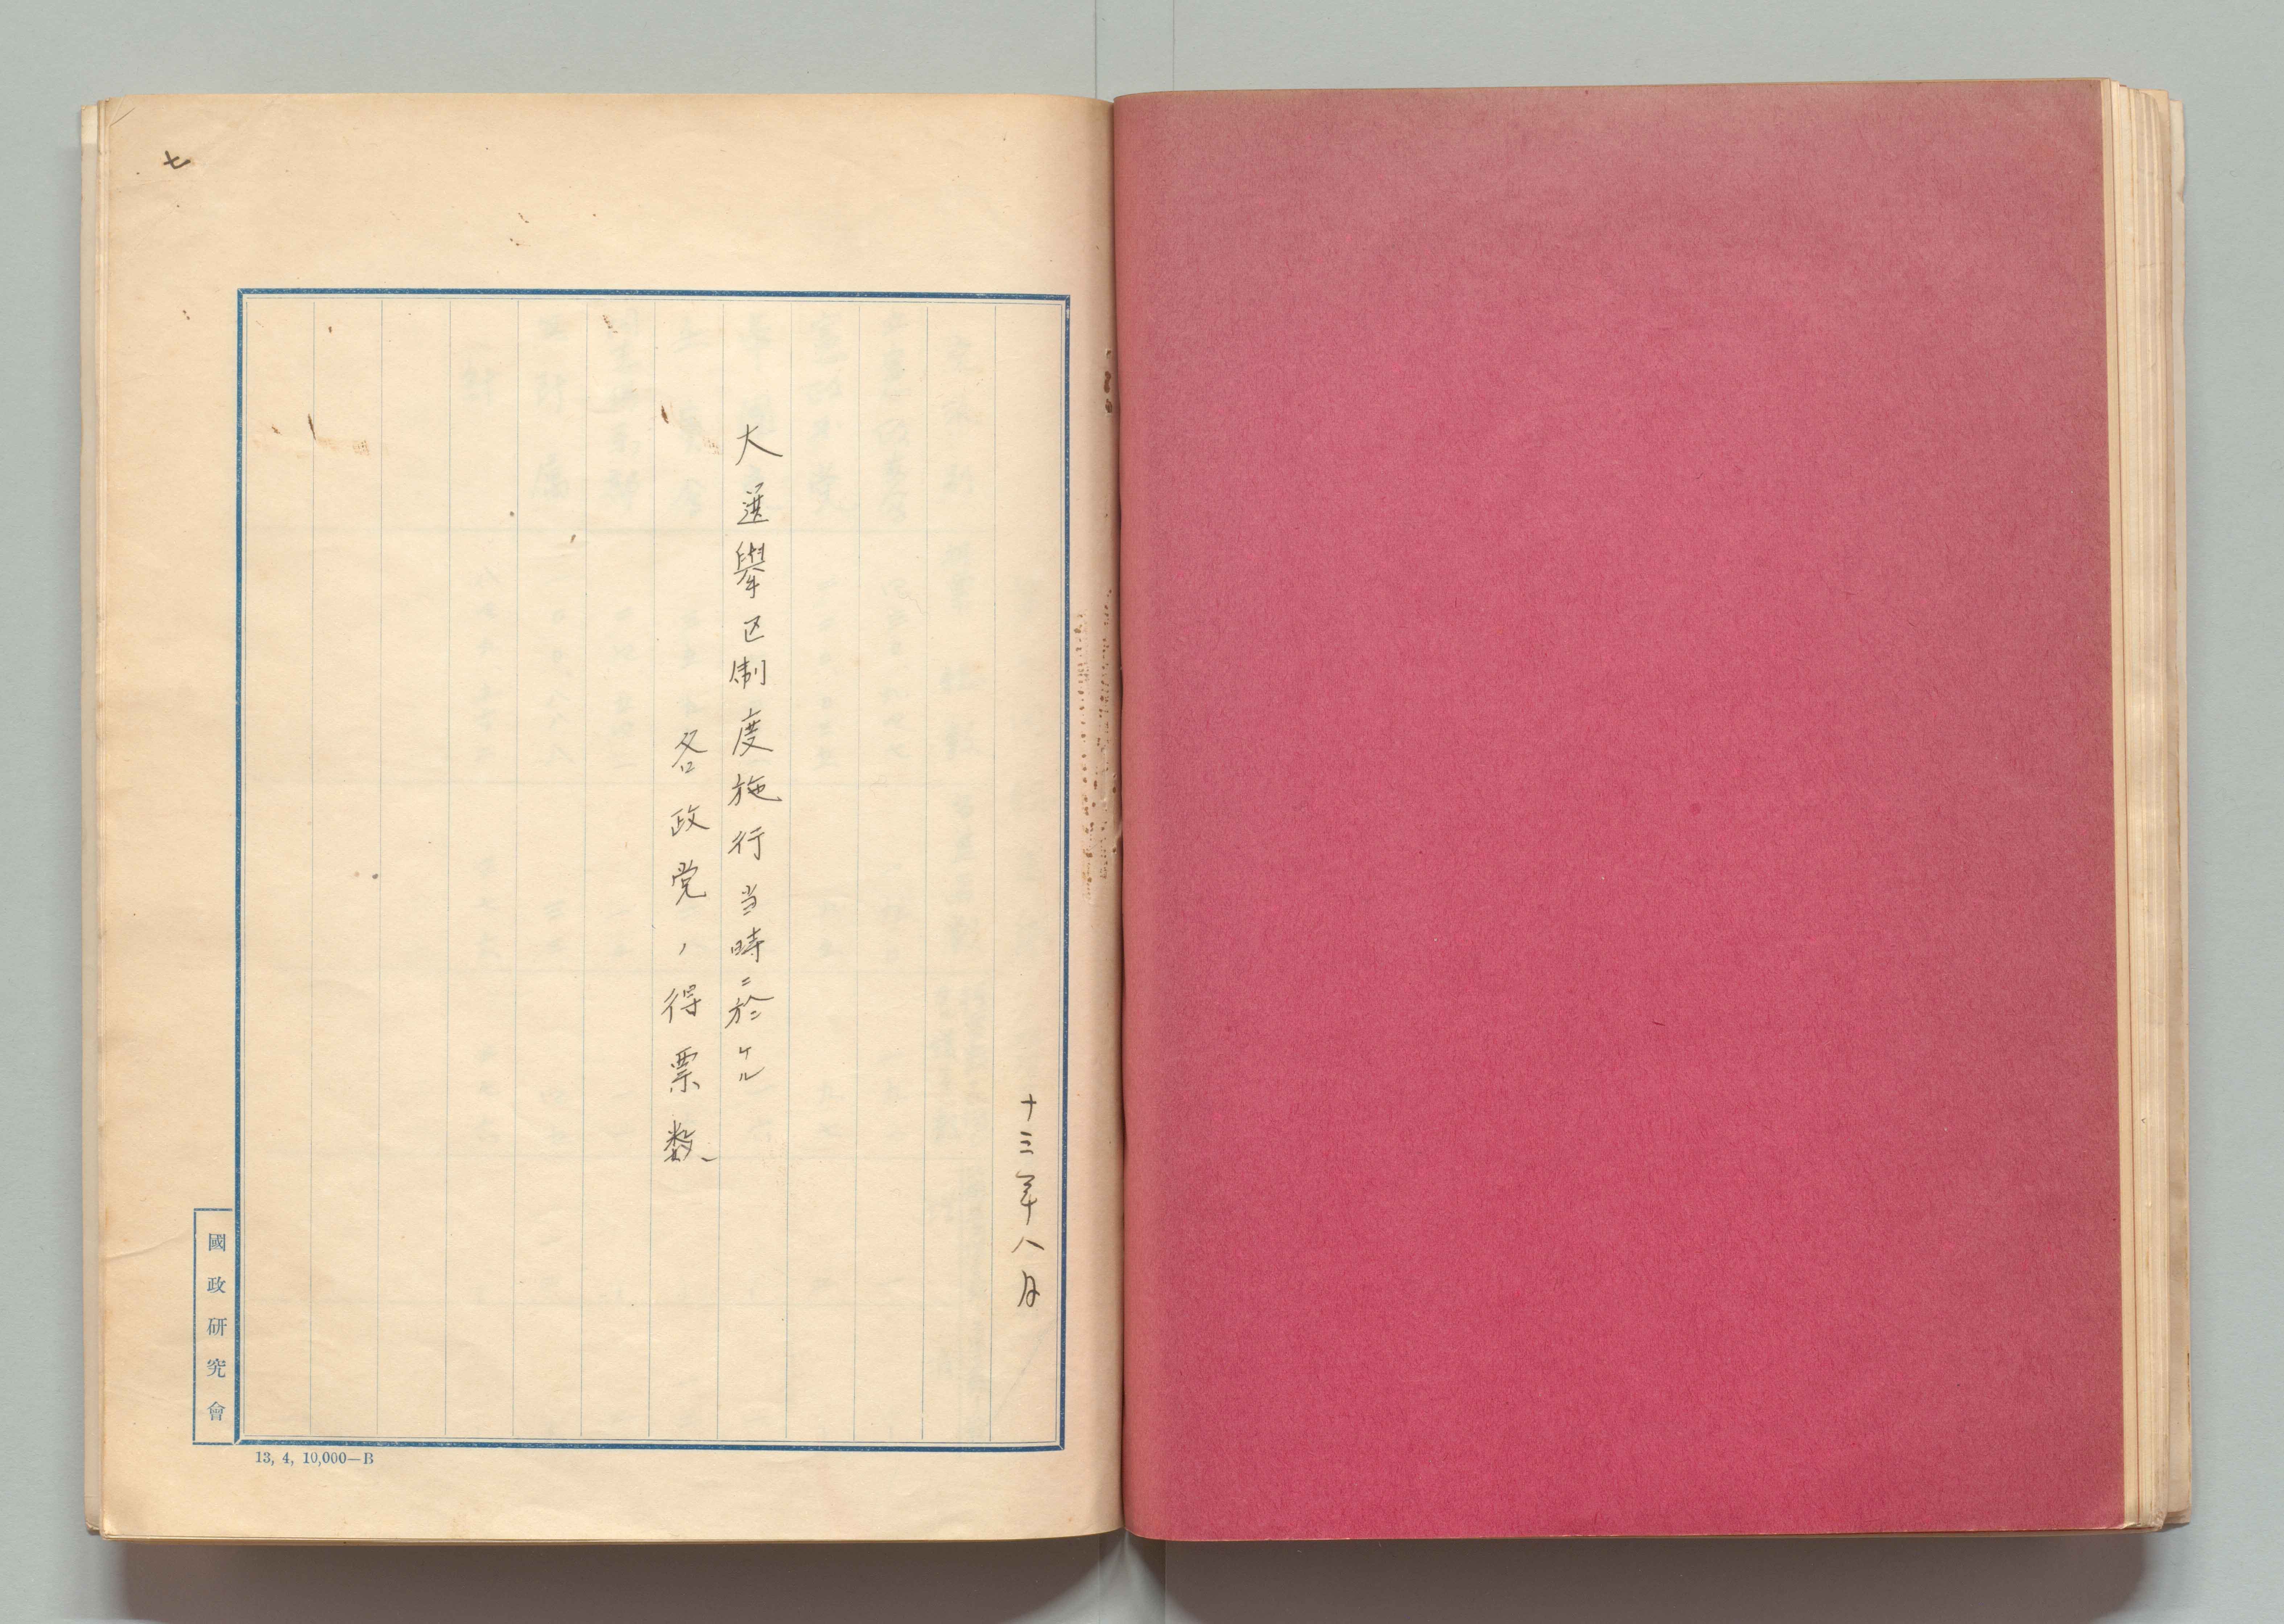 十三年八月
大選擧区制度施行当時ニ於ケル
各政党ノ得票数
七
國政研究會
13, 4, 10,000—B